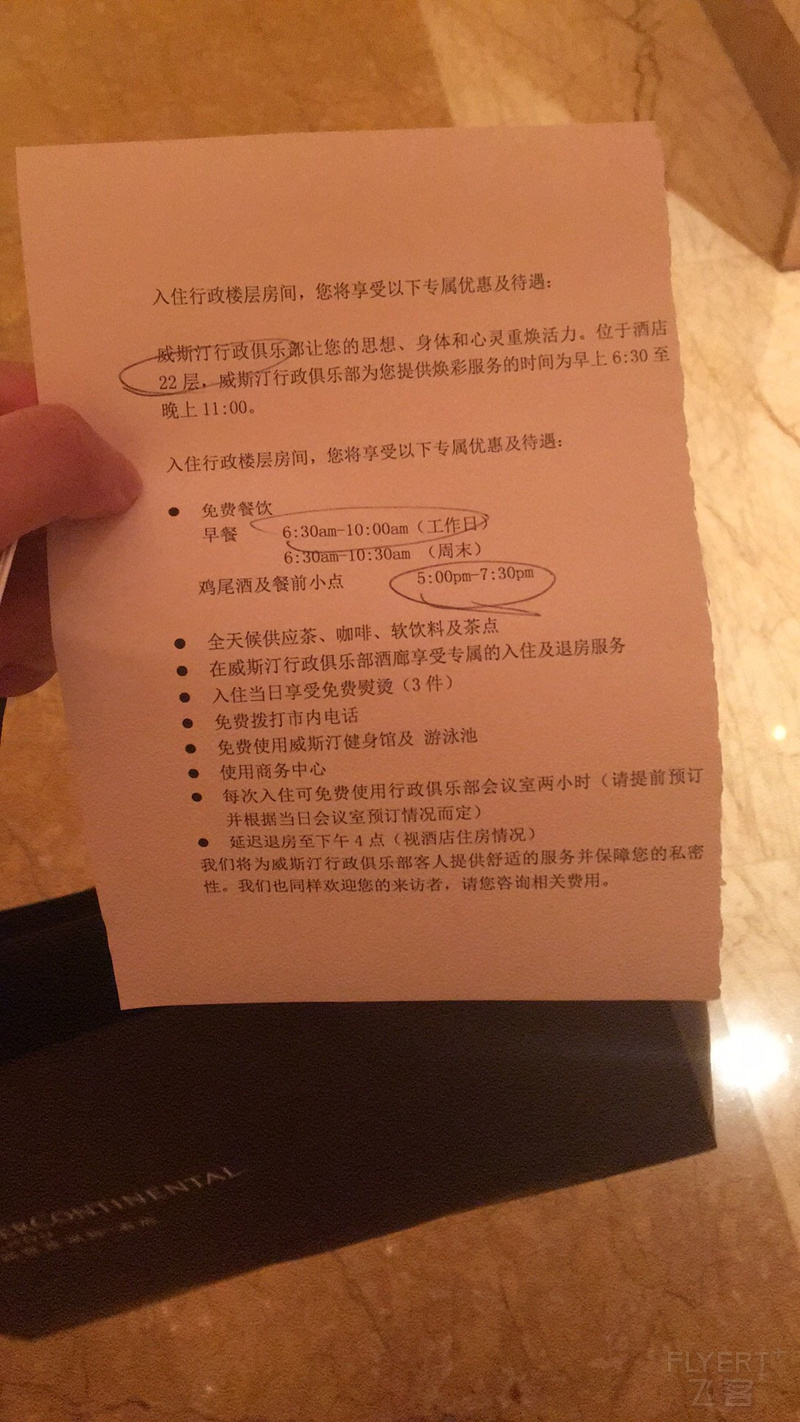 入住行政楼层房间，您将享受以下专属优惠及待遇：
威斯汀行政俱乐部让您的思想、身体和心灵重焕活力。位于酒店
22 层，威斯汀行政俱乐部为您提供焕彩服务的时间为早上 6:30 至
晚上 11:00。
入住行政楼层房间，您将享受以下专属优惠及待遇：
● 免费餐饮
早餐 6:30am-10:00am（工作日）
6:30am-10:30am （周末）
鸡尾酒及餐前小点 5:00pm-7:30pm
● 全天候供应茶、咖啡、软饮料及茶点
● 在威斯汀行政俱乐部酒廊享受专属的入住及退房服务
● 入住当日享受免费熨烫（3 件）
● 免费拨打市内电话
● 免费使用威斯汀健身馆及 游泳池
● 使用商务中心
● 每次入住可免费使用行政俱乐部会议室两小时（请提前预订
并根据当日会议室预订情况而定）
● 延迟退房至下午 4 点（视酒店住房情况）
我们将为威斯汀行政俱乐部客人提供舒适的服务并保障您的私密
性。我们也同样欢迎您的来访者，请您咨询相关费用。
ERCONTINENTAL
FLYERT
飞客